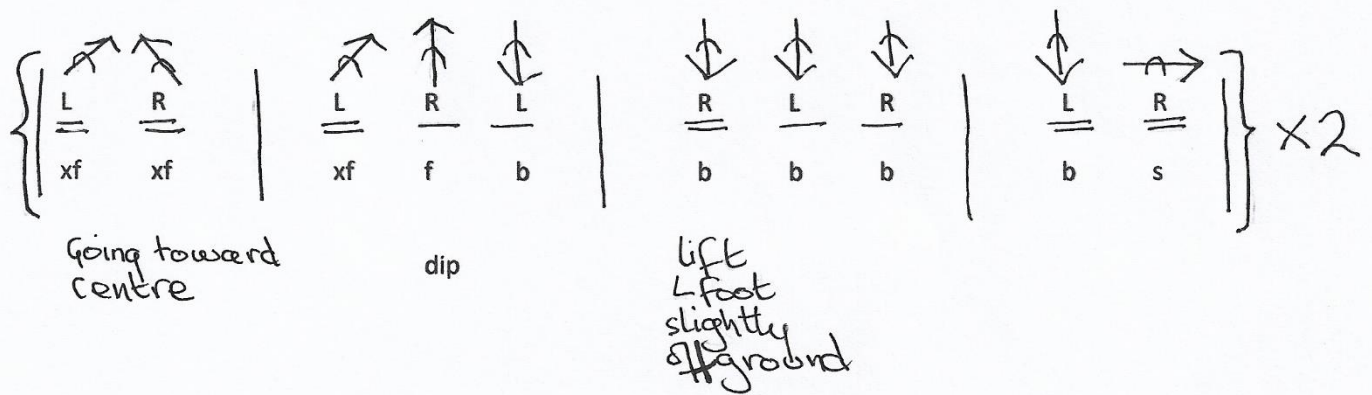 L R L R L R L R L R
xf xf xf f b b b b b s
×2
Going toward
centre
dip
lift
L foot
slightly
off ground